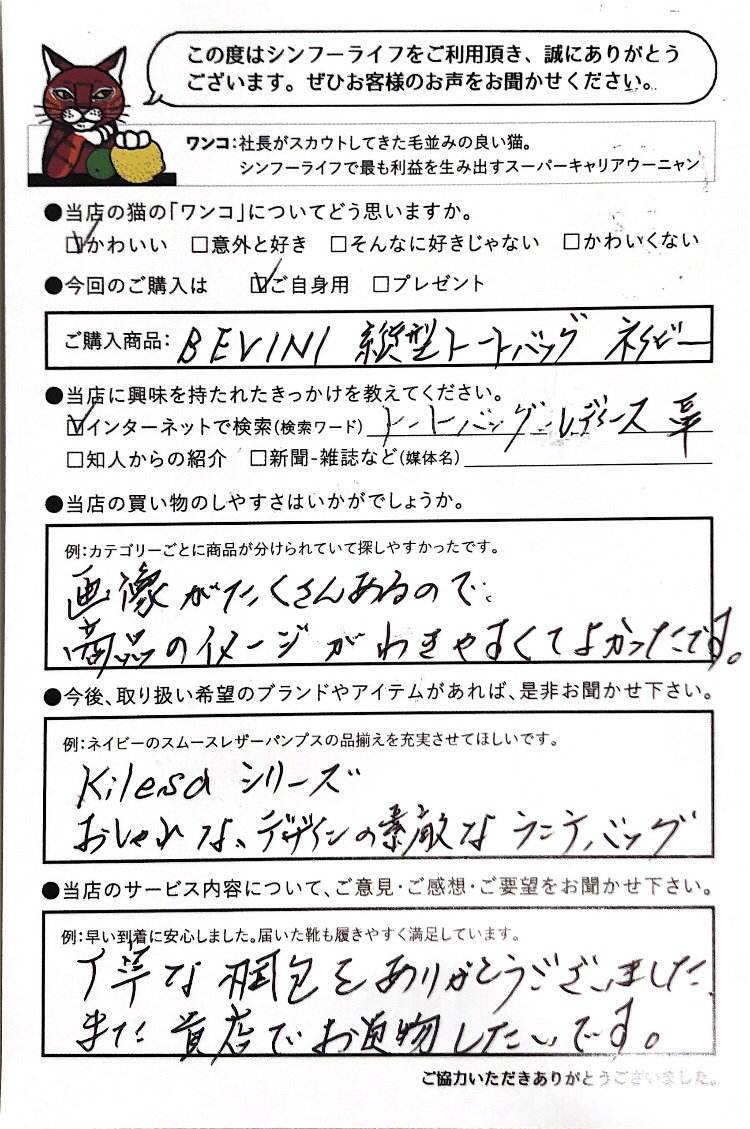 この度はシンフーライフをご利用頂き、誠にありがとう
ございます。ぜひお客様のお声をお聞かせください。
ワンコ：社長がスカウトしてきた毛並みの良い猫。
シンフーライフで最も利益を生み出すスーパーキャリアウーニャン
●当店の猫の「ワンコ」についてどう思いますか。
☑かわいい □意外と好き □そんなに好きじゃない □かわいくない
●今回のご購入は ☑ご自身用 □プレゼント
ご購入商品：BEVINI 縦型トートバッグ ネイビー
●当店に興味を持たれたきっかけを教えてください。
☑インターネットで検索(検索ワード) トートバッグ レディース 革
□知人からの紹介 □新聞-雑誌など(媒体名)
●当店の買い物のしやすさはいかがでしょうか。
例：カテゴリーごとに商品が分けられていて探しやすかったです。
画像がたくさんあるので、
商品のイメージがわきやすくてよかったです。
●今後、取り扱い希望のブランドやアイテムがあれば、是非お聞かせ下さい。
例：ネイビーのスムースレザーパンプスの品揃えを充実させてほしいです。
Kilesa シリーズ
おしゃれな、デザインの素敵なランチバッグ
●当店のサービス内容について、ご意見・ご感想・ご要望をお聞かせ下さい。
例：早い到着に安心しました。届いた靴も履きやすく満足しています。
丁寧な梱包をありがとうございました。
また貴店でお買物したいです。
ご協力いただきありがとうございました。